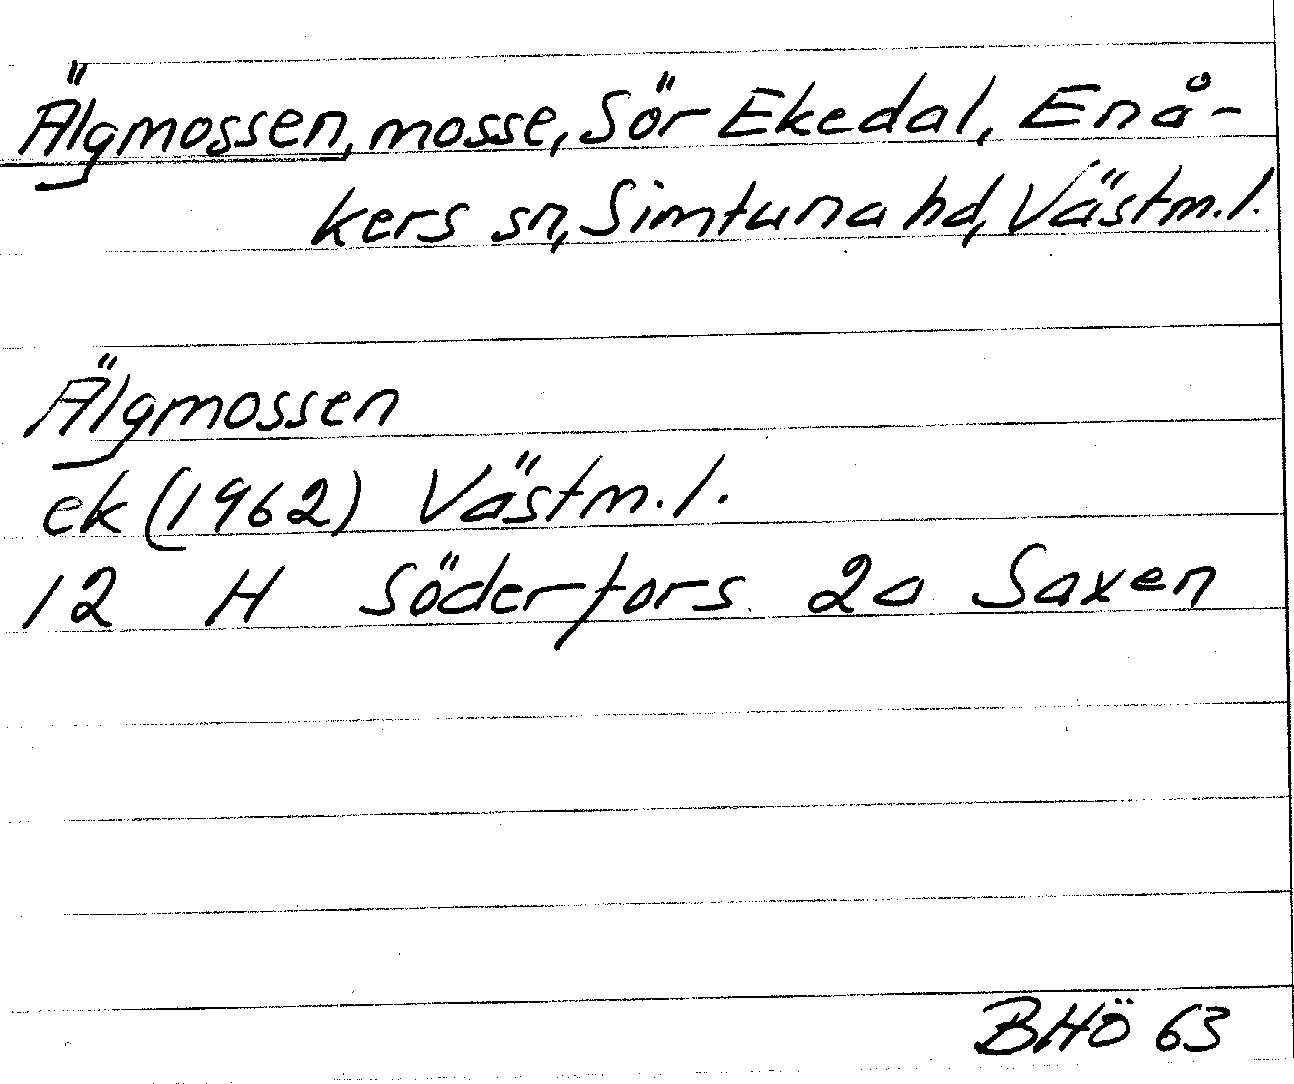 Älgmossen, mosse, Sör Ekedal, Enå-
kers sn, Simtuna hd, Västm. l.
Älgmossen
ek (1962) Västm. l.
12 H Söderfors 2a Saxen
BHÖ 63